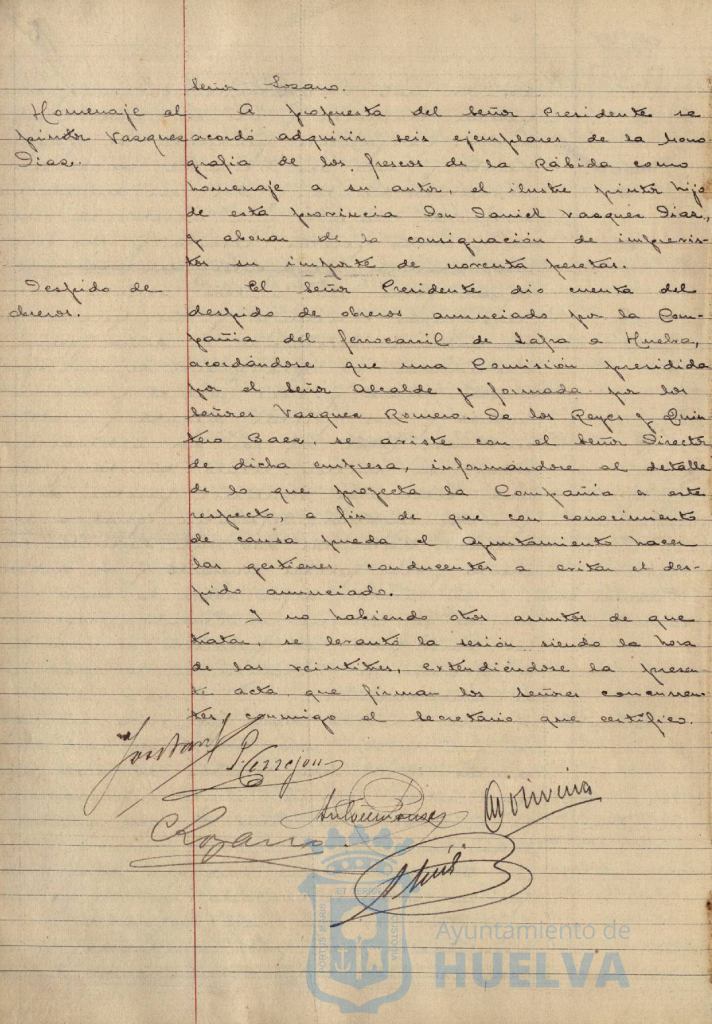 Señor Lozano.
Homenaje al
pintor Vazquez
Diaz.
A propuesta del Señor Presidente se
acordó adquirir seis ejemplares de la mono
grafía de los frescos de la Rábida como
homenaje a su autor, el ilustre pintor hijo
de esta provincia Don Daniel Vazquez Diaz,
y abonar de la consignación de imprevis-
tos su importe de noventa pesetas.
Despido de
obreros.
El Señor Presidente dió cuenta del
despido de obreros anunciado por la Com-
pañia del ferrocarril de Zafra a Huelva,
acordándose que una Comisión presidida
por el Señor Alcalde y formada por los
Señores Vazquez Romero, De los Reyes y Quin
tero Baez, se aviste con el Señor Director
de dicha empresa, informándose al detalle
de lo que proyecta la Compañia a este
respecto, a fin de que con conocimiento
de causa pueda el Ayuntamiento hacer
las gestiones conducentes a evitar el des-
pido anunciado.
Y no habiendo otros asuntos de que
tratar, se levantó la sesión siendo la hora
de las veintitres, extendiéndose la presen-
te acta que firman los señores concurren-
tes conmigo el Secretario que certifico.
P. Cerrejon
Oliveira
Lozano
ET TERRAE
CUSTODIA
PORTUS MARIS
Ayuntamiento de
HUELVA